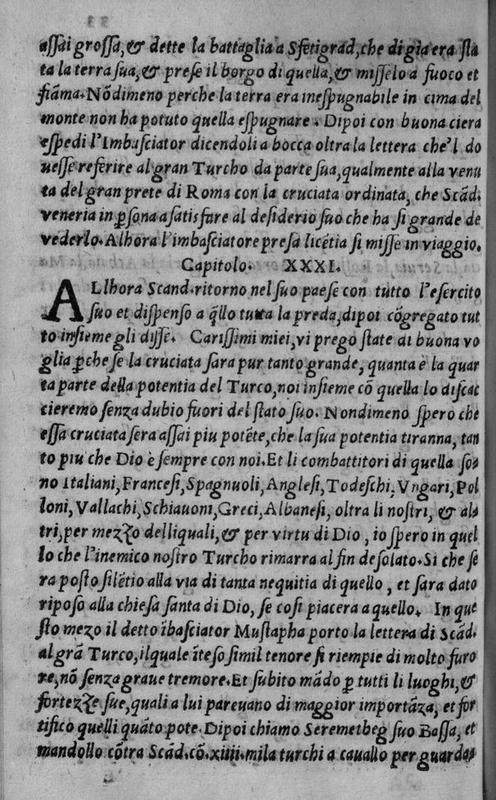 assai grossa,& dette la battaglia a Sfetigrad,che di gia era sta
ta la terra sua,& prese il borgo di quella,& misselo a fuoco et
fiãma.Nõdimeno perche la terra era inespugnabile in cima del
monte non ha potuto quella espugnare. Dipoi con buona ciera
espedi l'Imbasciator dicendoli a bocca oltra la lettera che'l do
uesse referire al gran Turcho da parte sua,qualmente alla venu
ta del gran prete di Roma con la cruciata ordinata, che Scãd.
veneria in p̱sona a satisfare al desiderio suo che ha si grande de
vederlo.Alhora l'imbasciatore presa licẽtia si misse in viaggio.
Capitolo. XXXI.
ALlhora Scand.ritorno nel suo paese con tutto l'esercito
suo et dispenso a q̃llo tutta la preda,dipoi cõgregato tut
to insieme gli disse. Carissimi miei,vi prego state di buona vo
glia p̱che se la cruciata sara pur tanto grande, quanta è la quar
ta parte della potentia del Turco,noi insieme cõ quella lo discac
cieremo senza dubio fuori del stato suo. Nondimeno spero che
essa cruciata sera assai piu potẽte,che la sua potentia tiranna, tan
to piu che Dio è sempre con noi.Et li combattitori di quella so
no Italiani,Francesi,Spagnuoli,Anglesi,Todeschi,Vngari,Pol
loni,Vallachi,Schiauoni,Greci,Albanesi, oltra li nostri, & al
tri,per mezzo delliquali,& per virtu di Dio, io spero in quel
lo che l'inemico nostro Turcho rimarra al fin desolato.Si che se
ra posto silẽtio alla via di tanta nequitia di quello, et sara dato
riposo alla chiesa santa di Dio, se cosi piacera a quello. In que
sto mezo il detto ĩbasciator Mustapha porto la lettera di Scãd.
al grã Turco,ilquale ĩteso simil tenore si riempie di molto furo
re,nõ senza graue tremore.Et subito mãdo p̱ tutti li luoghi,&
fortezze sue,quali a lui pareuano di maggior importãza, et for
tifico quelli quãto pote.Dipoi chiamo Seremetbeg suo Bassa, et
mandollo cõtra Scãd.cõ.xiiii.mila turchi a cauallo per guarda